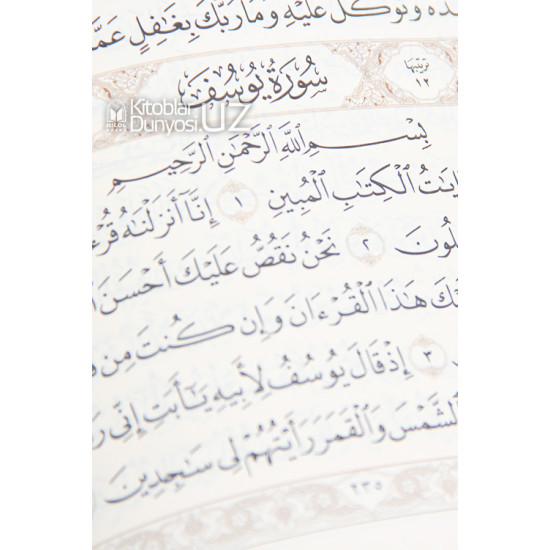 ده وتوكل عليه وما ربك بغافل عما
سُورَةُ يُوسُفَ
ترتيبها
١٢
Kitoblar
Dunyosi.UZ
بِسْمِ ٱللَّهِ ٱلرَّحْمَٰنِ ٱلرَّحِيمِ
ايَٰتُ ٱلْكِتَٰبِ ٱلْمُبِينِ ١ إِنَّآ أَنزَلْنَٰهُ قُرْءَ
لُونَ ٢ نَحْنُ نَقُصُّ عَلَيْكَ أَحْسَنَ ا
كَ هَٰذَا ٱلْقُرْءَانَ وَإِن كُنتَ مِن
٣ إِذْ قَالَ يُوسُفُ لِأَبِيهِ يَٰٓأَبَتِ إِنِّى رَ
ٱلشَّمْسَ وَٱلْقَمَرَ رَأَيْتُهُمْ لِى سَٰجِدِينَ
٢٣٥